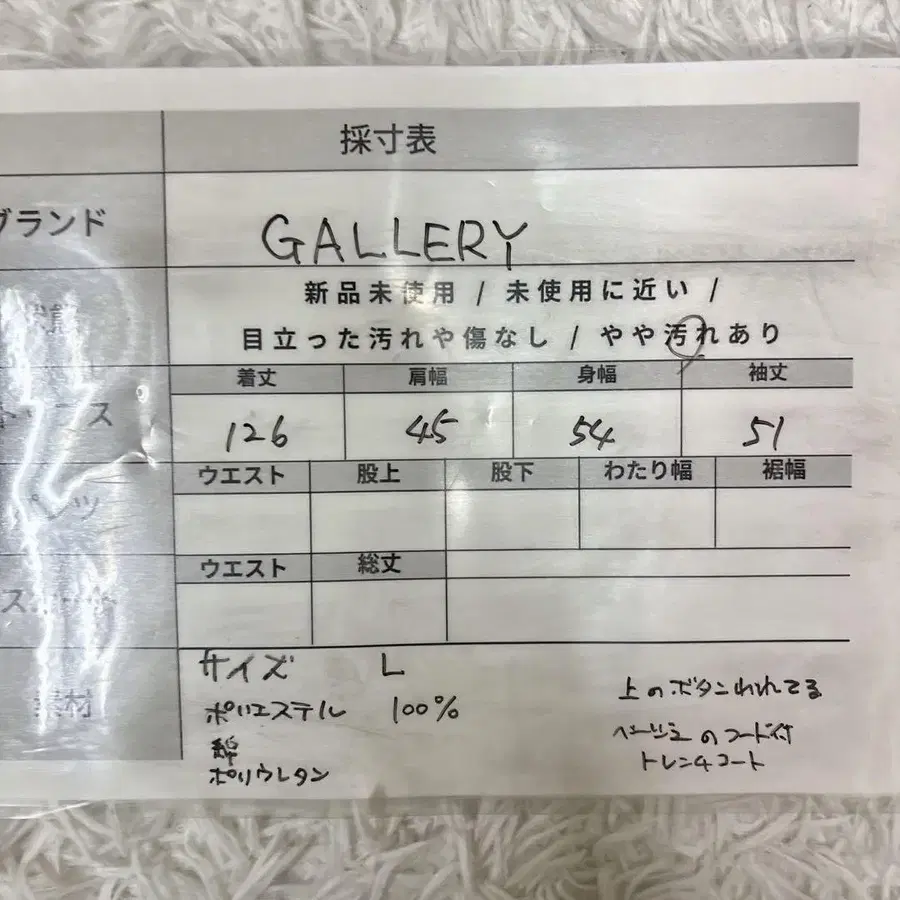 採寸表
ブランド GALLERY
新品未使用 / 未使用に近い /
状態
目立った汚れや傷なし / やや汚れあり
着丈 肩幅 身幅 袖丈
126 45 54 51
ウエスト 股上 股下 わたり幅 裾幅
ウエスト 総丈
サイズ L
素材
ポリエステル 100%
綿
ポリウレタン
上のボタンわれてる
ベージュのフード付
トレンチコート